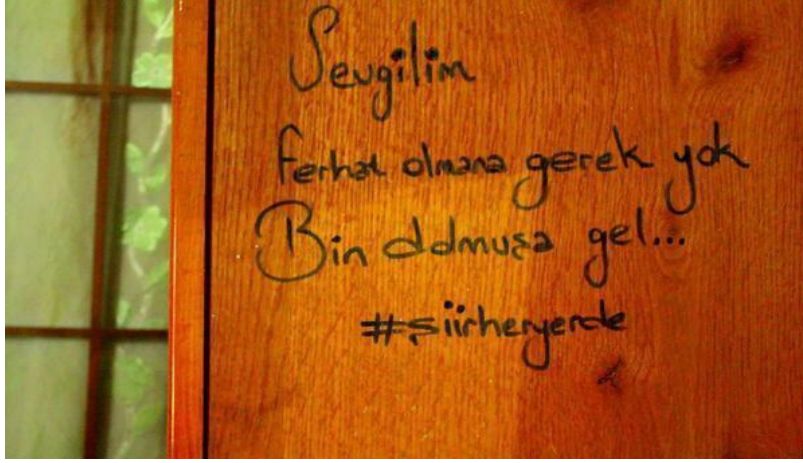 Sevgilim
Ferhat olmana gerek yok
Bin dolmuşa gel...
#şiirheryerde